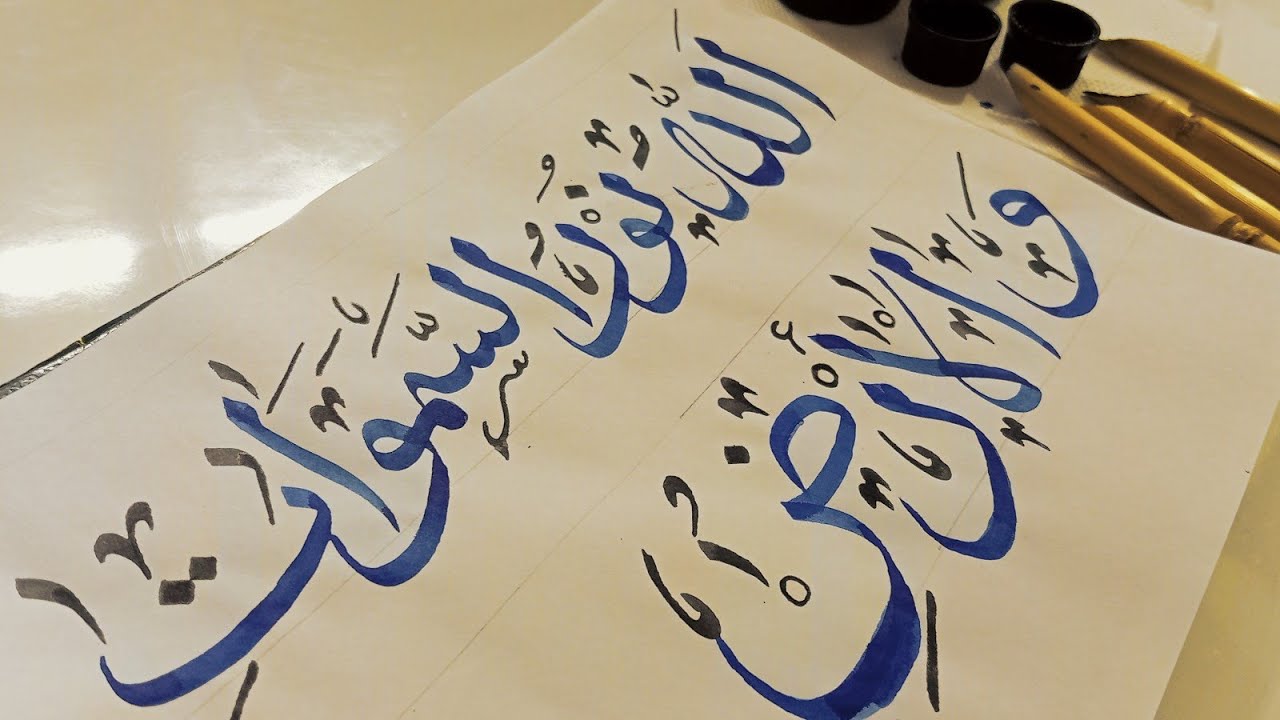 اَللّٰهُ نُوْرُ السَّمٰوَاتِ
وَالْأَرْضِ